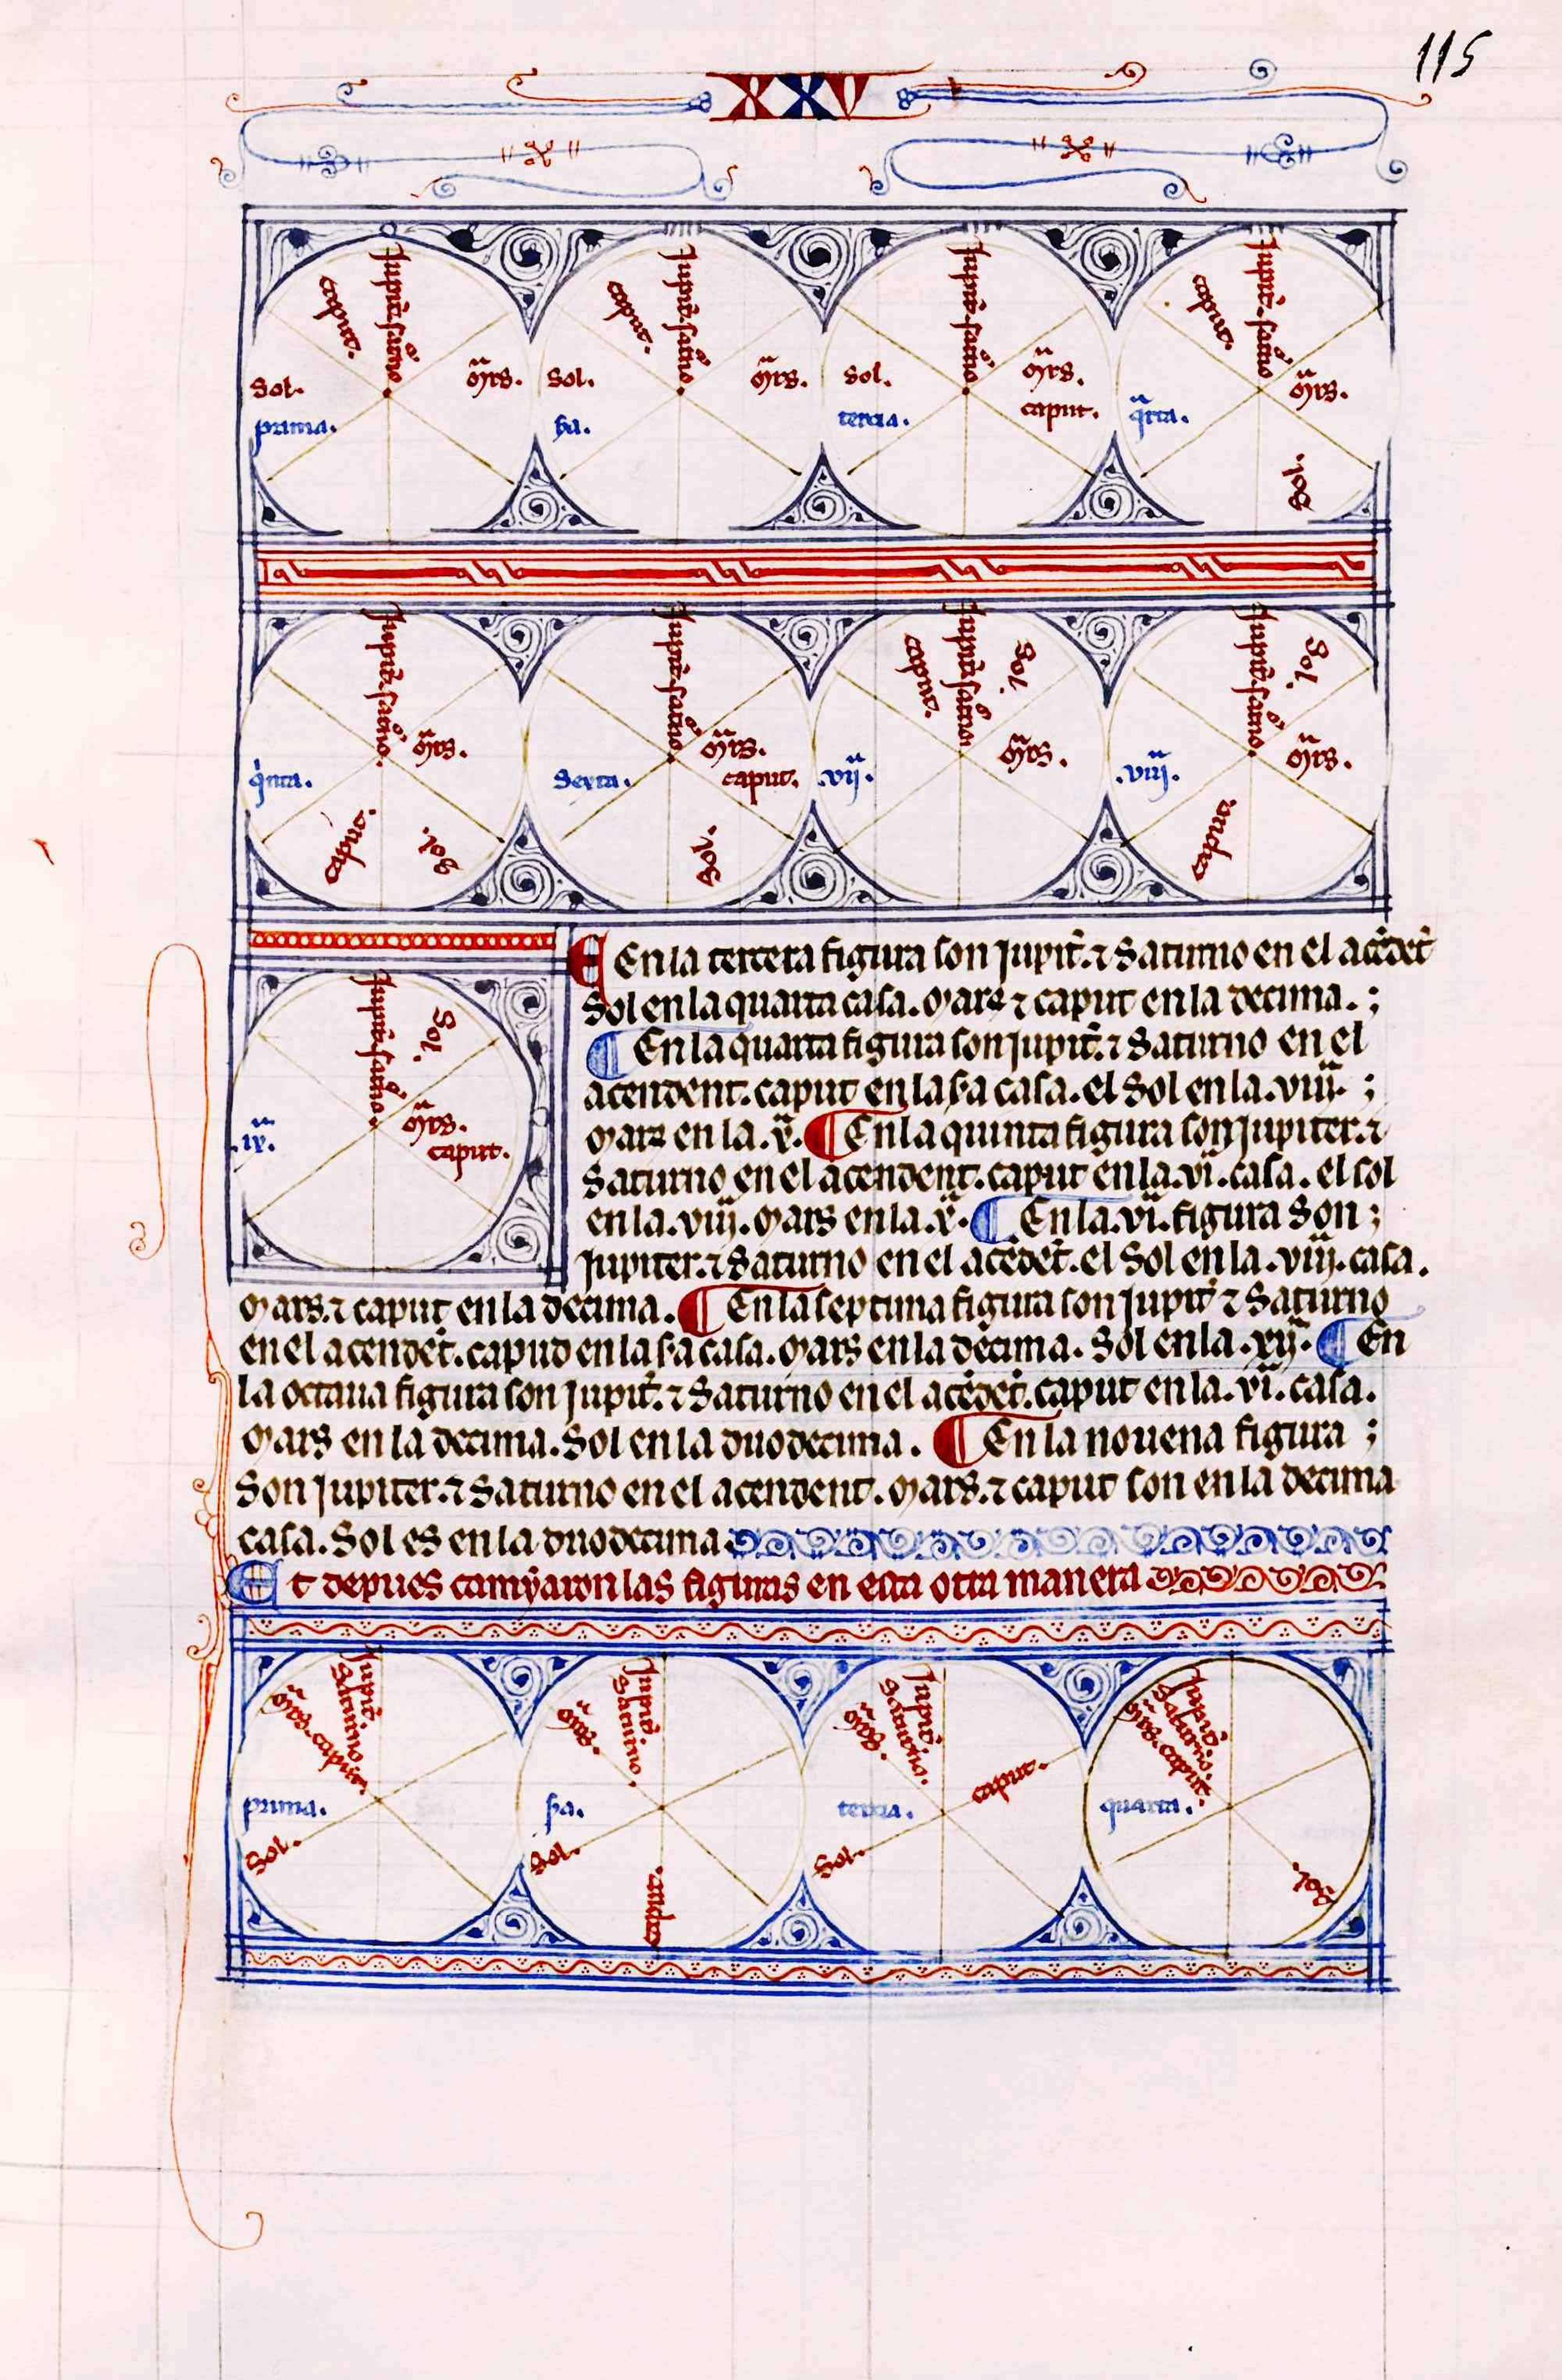 115
XXV
caput. Jupit̃. satño
Sol. mr̃s.
prima.
caput. Jupit̃. satño
Sol. mr̃s.
ẜa.
Jupit̃. satño
Sol. mr̃s.
caput.
tercia.
caput. Jupit̃. satño
mr̃s.
qͣrta.
Sol.
Jupit̃. satño.
mr̃s.
qͥnta.
caput. Sol.
Jupit̃. satño.
mr̃s.
Sexta. caput.
Sol.
caput. Jupit̃. satño Sol.
mr̃s.
.vijͣ.
Jupit̃. satño. Sol.
mr̃s.
.viijͣ.
caput
Jupit̃. satño. Sol.
mr̃s.
.ixͣ. caput.
En la tercera figura son jupit̃. ⁊ Saturno en el acẽdẽt
Sol en la quarta casa. mars ⁊ caput en la decima. ;
¶ En la quarta figura son jupit̃. ⁊ Saturno en el
acendent. caput en la ẜa casa. el Sol en la .viijͣ. ;
mars en la .xͣ. ¶ En la quinta figura son jupiter. ⁊
Saturno en el acendent. caput en la .viͣ. casa. el sol
en la .viijͣ. mars en la .xͣ. ¶ En la .viͣ. figura Son ;
jupiter. ⁊ Saturno en el acẽdẽt. el Sol en la .viijͣ. casa.
mars. ⁊ caput en la decima. ¶ En la septima figura son jupit̃ ⁊ Saturno
en el acendẽt. capud en la ẜa casa. mars en la decima. Sol en la .xijͣ. ¶ En
la octaua figura son jupit̃. ⁊ Saturno en el acẽdẽt. caput en la .viͣ. casa.
mars en la decima. Sol en la duodecima. ¶ En la nouena figura ;
Son jupiter. ⁊ Saturno en el acendent. mars. ⁊ caput son en la decima
casa. Sol es en la duodecima
Et depues camyaron las figuras en esta otra manera
Jupit̃. Saturno.
mr̃s. caput.
prima.
Sol.
Jupit̃. Saturno.
mr̃s.
ẜa.
Sol.
caput.
Jupit̃. Saturno.
mr̃s.
caput.
tercia.
Sol.
Jupit̃. Saturno.
mr̃s. caput.
quarta.
Sol.